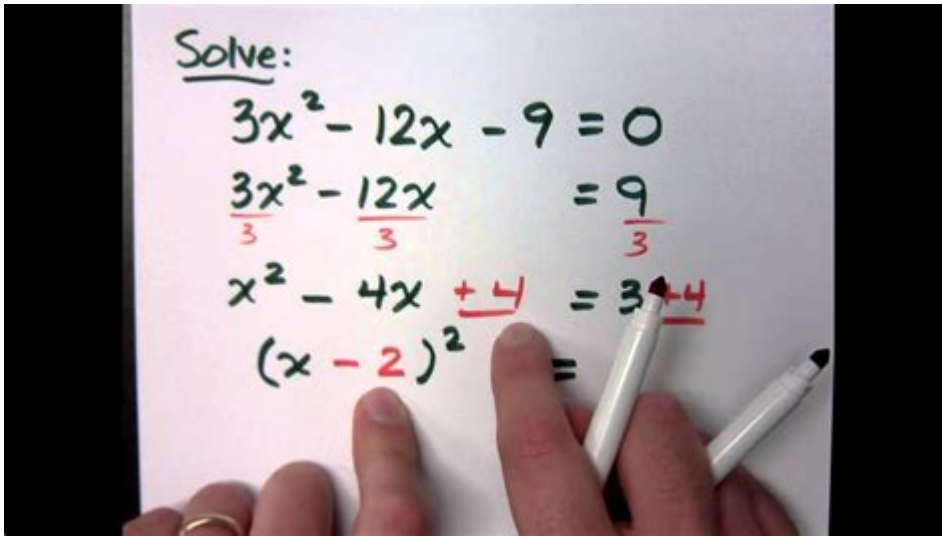 Solve:
3x² - 12x - 9 = 0
3x²/3 - 12x/3 = 9/3
x² - 4x + 4 = 3 + 4
(x - 2)² =